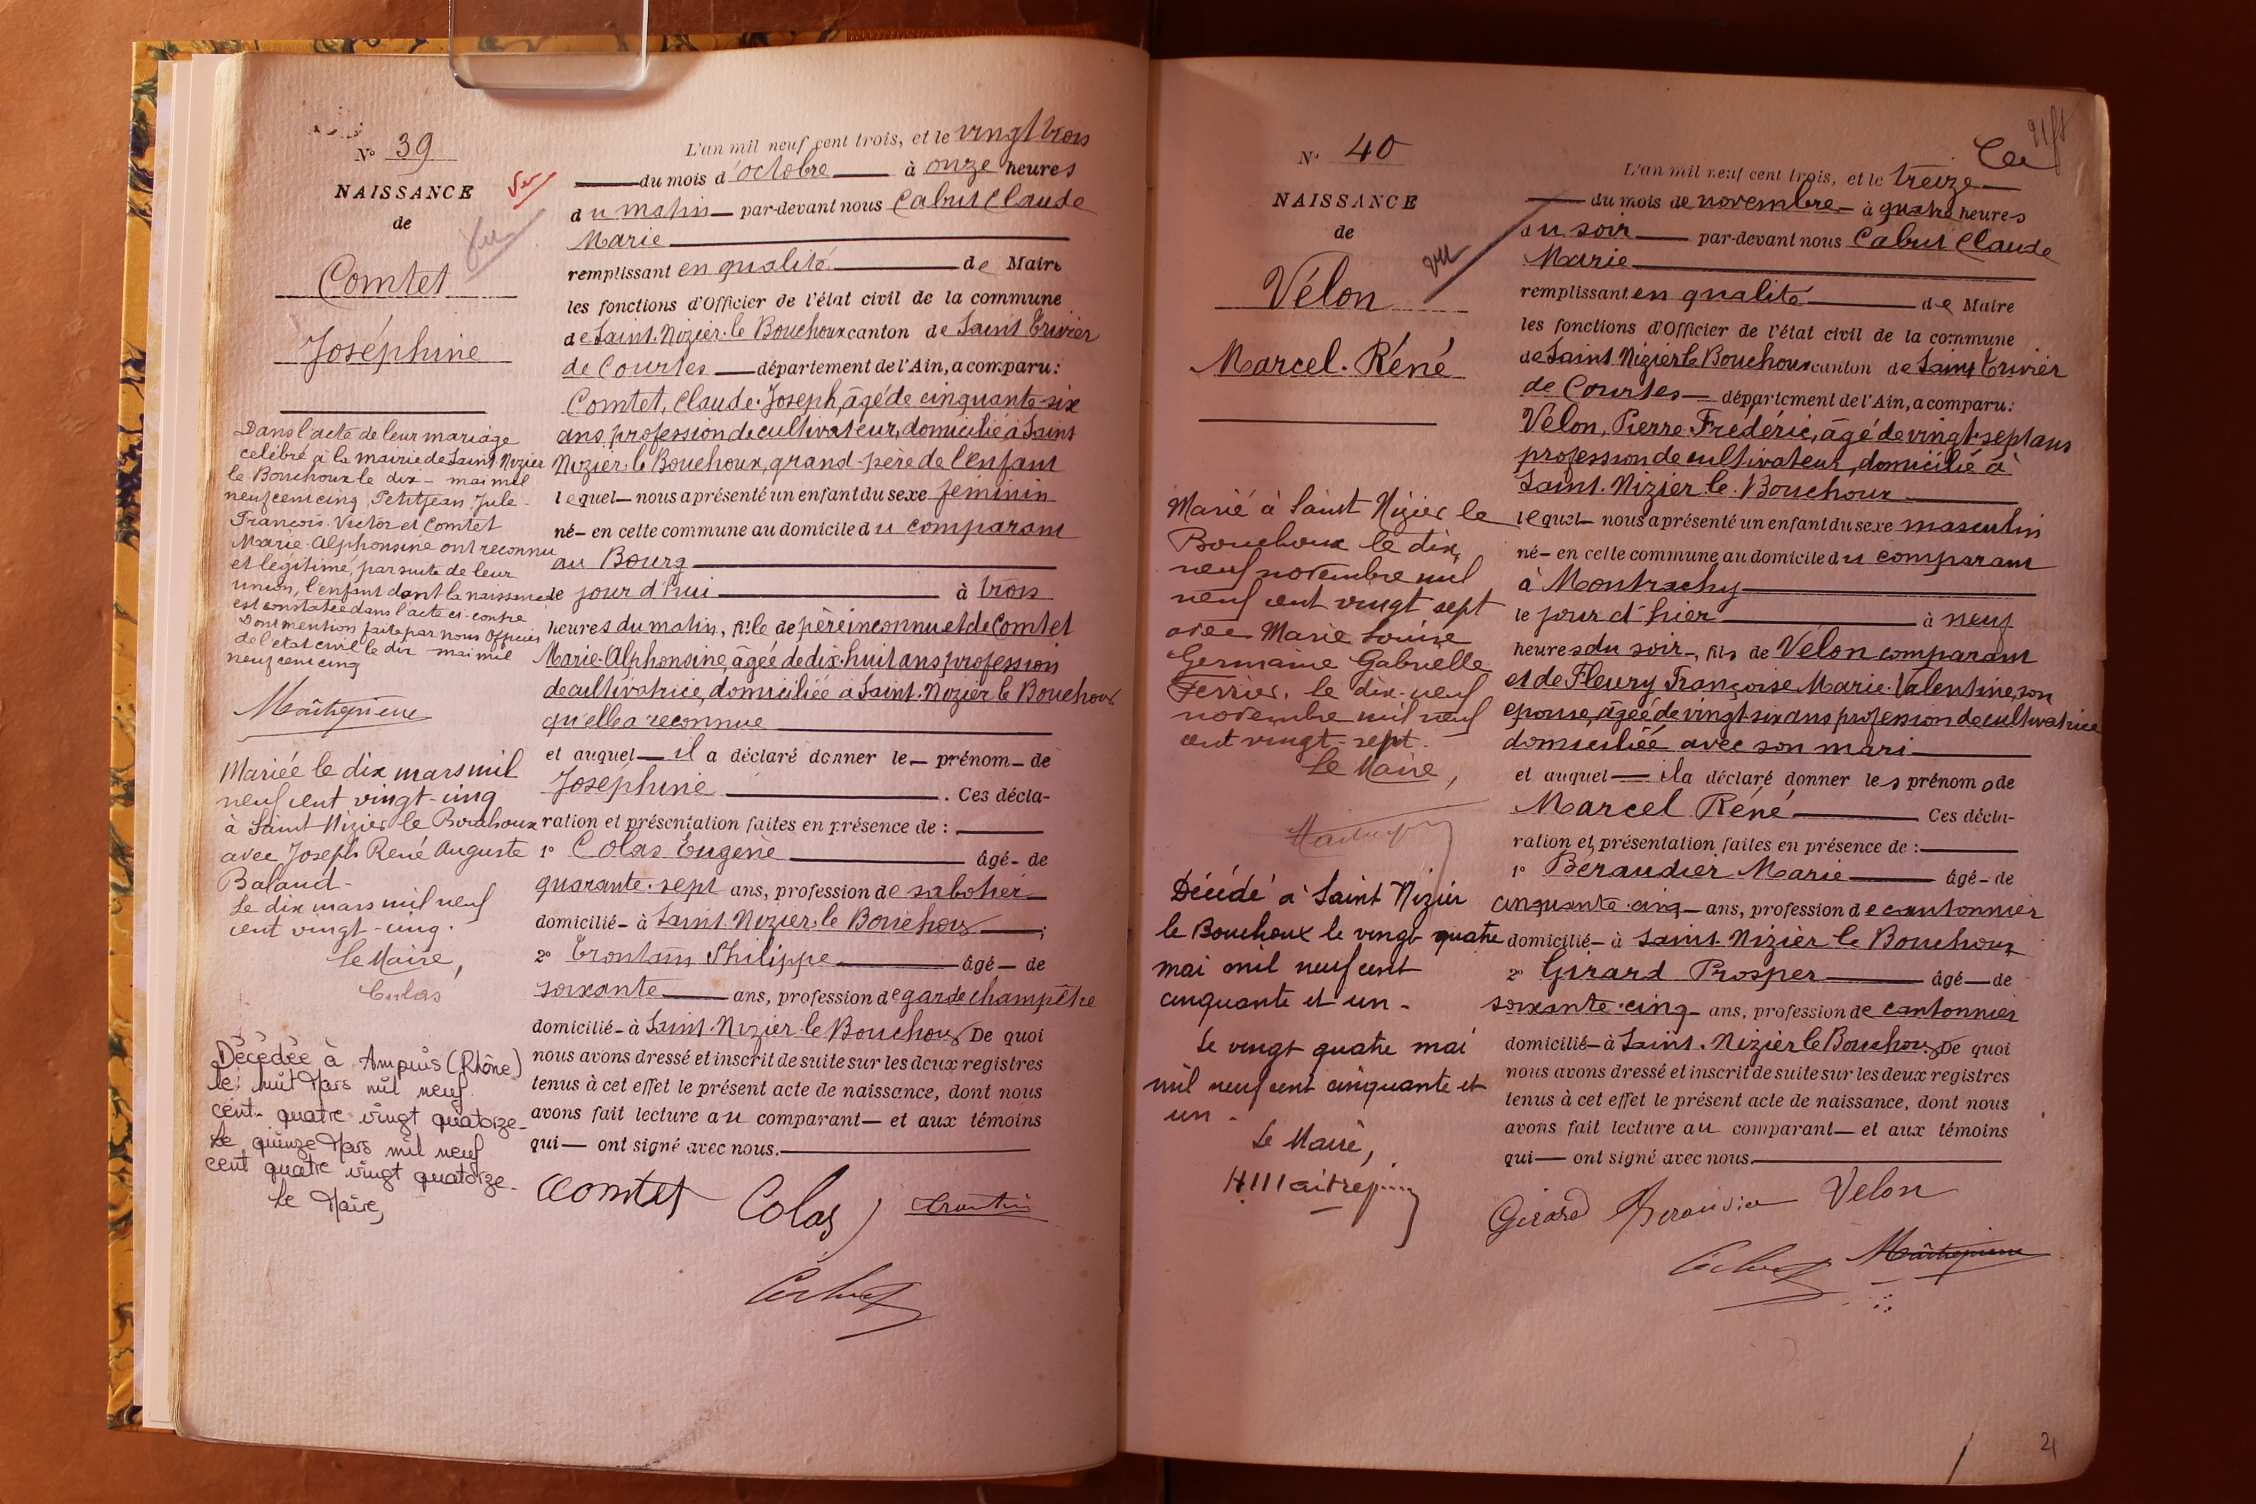 N° 39
NAISSANCE
de
Comtet
Joséphine
Dans l'acte de leur mariage
célébré à la mairie de Saint-Nizier
le Bouchoux le dix mai mil
neuf cent cinq Petitjean Jule
François Victor et Comtet
Marie Alphonsine ont reconnu
et légitimé, par suite de leur
union, l'enfant dont la naissance
est constatée dans l'acte ci-contre
Dont mention faite par nous Officier
de l'état civil le dix mai mil
neuf cent cinq
Mariée le dix mars mil
neuf cent vingt-cinq
à Saint Nizier le Bouchoux
avec Joseph René Auguste
Baland
Le dix mars mil neuf
cent vingt-cinq.
Le Maire,
Décédée à Ampuis (Rhône)
le huit Mars mil neuf
cent quatre vingt quatorze
Le quinze Mars mil neuf
cent quatre vingt quatorze
Le Maire,
L'an mil neuf cent trois, et le vingt trois
du mois d'octobre à onze heures
du matin par-devant nous Cabut Claude
Marie
remplissant en qualité de Maire
les fonctions d'Officier de l'état civil de la commune
de Saint-Nizier-le Bouchoux canton de Saint Trivier
de Courtes département de l'Ain, a comparu :
Comtet, Claude-Joseph, âgé de cinquante-six
ans, profession de cultivateur, domicilié à Saint
Nizier le Bouchoux, grand-père de l'enfant
lequel nous a présenté un enfant du sexe féminin
né en cette commune au domicile du comparant
au Bourg
le jour d'hui à trois
heures du matin, fille de père inconnu et de Comtet
Marie-Alphonsine, âgée de dix-huit ans profession
de cultivatrice, domiciliée à Saint-Nizier le Bouchoux
qu'elle a reconnue
et auquel il a déclaré donner le prénom de
Joséphine . Ces décla-
ration et présentation faites en présence de :
1° Colas Eugène âgé de
quarante-sept ans, profession de sabotier
domicilié à Saint-Nizier-le Bouchoux ;
2° Trontain Philippe âgé de
soixante ans, profession de garde champêtre
domicilié à Saint-Nizier-le Bouchoux De quoi
nous avons dressé et inscrit de suite sur les deux registres
tenus à cet effet le présent acte de naissance, dont nous
avons fait lecture au comparant et aux témoins
qui ont signé avec nous.
Comtet Colas
N° 40
NAISSANCE
de
vu
Vélon
Marcel-Réné
Marié à Saint Nizier le
Bouchoux le dix
neuf novembre mil
neuf cent vingt sept
avec Marie Louise
Germaine Gabrielle
Ferrier. le dix-neuf
novembre mil neuf
cent vingt-sept.
Le Maire,
Décédé à Saint Nizier
le Bouchoux le vingt quatre
mai mil neuf cent
cinquante et un -
Le vingt quatre mai
mil neuf cent cinquante et
un -
Le Maire,
L'an mil neuf cent trois, et le treize
du mois de novembre à quatre heures
du soir par-devant nous Cabut Claude
Marie
remplissant en qualité de Maire
les fonctions d'Officier de l'état civil de la commune
de Saint Nizier le Bouchoux canton de Saint Trivier
de Courtes département de l'Ain, a comparu :
Vélon, Pierre-Frédéric, âgé de vingt-sept ans
profession de cultivateur, domicilié à
Saint-Nizier-le-Bouchoux
lequel nous a présenté un enfant du sexe masculin
né en cette commune au domicile du comparant
à Montrachy
le jour d'hier à neuf
heures du soir, fils de Vélon comparant
et de Fleury Françoise Marie-Valentine, son
épouse, âgée de vingt-six ans profession de cultivatrice
domiciliée avec son mari
et auquel il a déclaré donner les prénoms de
Marcel Réné Ces décla-
ration et présentation faites en présence de :
1° Béraudier Marie âgé de
cinquante-cinq ans, profession de cantonnier
domicilié à Saint-Nizier le Bouchoux
2° Girard Prosper âgé de
soixante-cinq ans, profession de cantonnier
domicilié à Saint-Nizier le Bouchoux De quoi
nous avons dressé et inscrit de suite sur les deux registres
tenus à cet effet le présent acte de naissance, dont nous
avons fait lecture au comparant et aux témoins
qui ont signé avec nous.
Girard Béraudier Velon
21